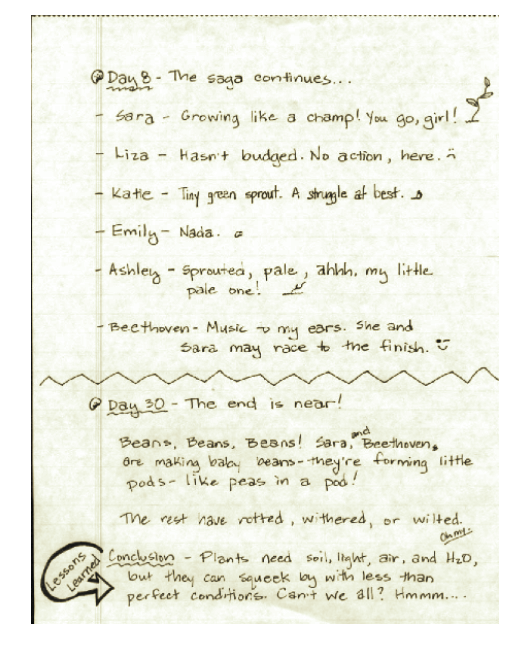 Day 8 - The saga continues...
- Sara - Growing like a champ! You go, girl!
- Liza - Hasn't budged. No action, here.
- Katie - Tiny green sprout. A struggle at best.
- Emily - Nada.
- Ashley - Sprouted, pale, ahhh, my little
pale one!
- Beethoven - Music to my ears. She and
Sara may race to the finish.
Day 30 - The end is near!
Beans, Beans, Beans! Sara, and Beethoven,
are making baby beans - they're forming little
pods - like peas in a pod!
The rest have rotted, withered, or wilted.
Oh my.
Lessons
Learned
Conclusion - Plants need soil, light, air, and H₂O,
but they can squeek by with less than
perfect conditions. Can't we all? Hmmm....